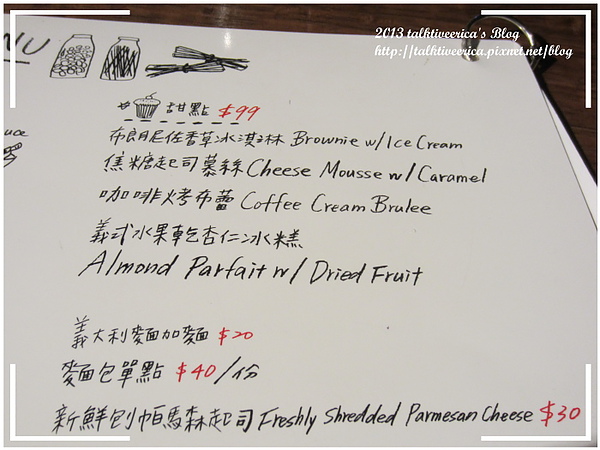 2013 talktiveerica's Blog
http://talktiveerica.pixnet.net/blog
NU
甜點 $99
布朗尼佐香草冰淇淋 Brownie w/ Ice Cream
焦糖起司慕絲 Cheese Mousse w/ Caramel
咖啡烤布蕾 Coffee Cream Brulee
義式水果乾杏仁冰糕
Almond Parfait w/ Dried Fruit
義大利麵加麵 $20
麵包單點 $40/份
新鮮刨帕馬森起司 Freshly Shredded Parmesan Cheese $30